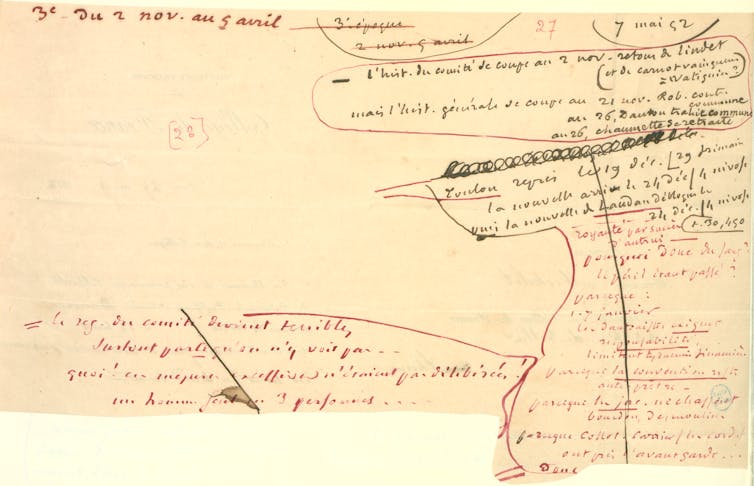 3e. Du 2 nov. au 5 avril
3e époque
2 nov. 5 avril
27
7 mai 52
– l'hist. du comité se coupe au 2 nov. retour de lindet
(et de carnot vainqueur
à vatignies ?)
mais l'hist. générale se coupe au 21 nov. Rob. cont. commune
au 26, Danton trahit commune
au 26, chaumette se retracte
[28]
Toulon repris le 19 déc. / 29 frimaire
la nouvelle arrive le 24 déc / 4 nivose
puis la nouvelle de Landau débloqué le
24 déc. / 4 nivose
t. 30, 450
royauté
d'autrui
pourquoi Donc
le péril étant passé ?
parceque :
1-7 janvier
les dantonistes exigent
responsabilité,
parceque la convention est
parceque les jac. ne chassent
bourdon, Desmoulins
parceque Collot.
ont pris l'avant garde . . .
Donc
= le reg. du comité devient terrible,
surtout parcequ'on n'y voit pas . . .
quoi en mesures excessives n'étaient pas délibérées,
un homme seul en 3 personnes . . . .